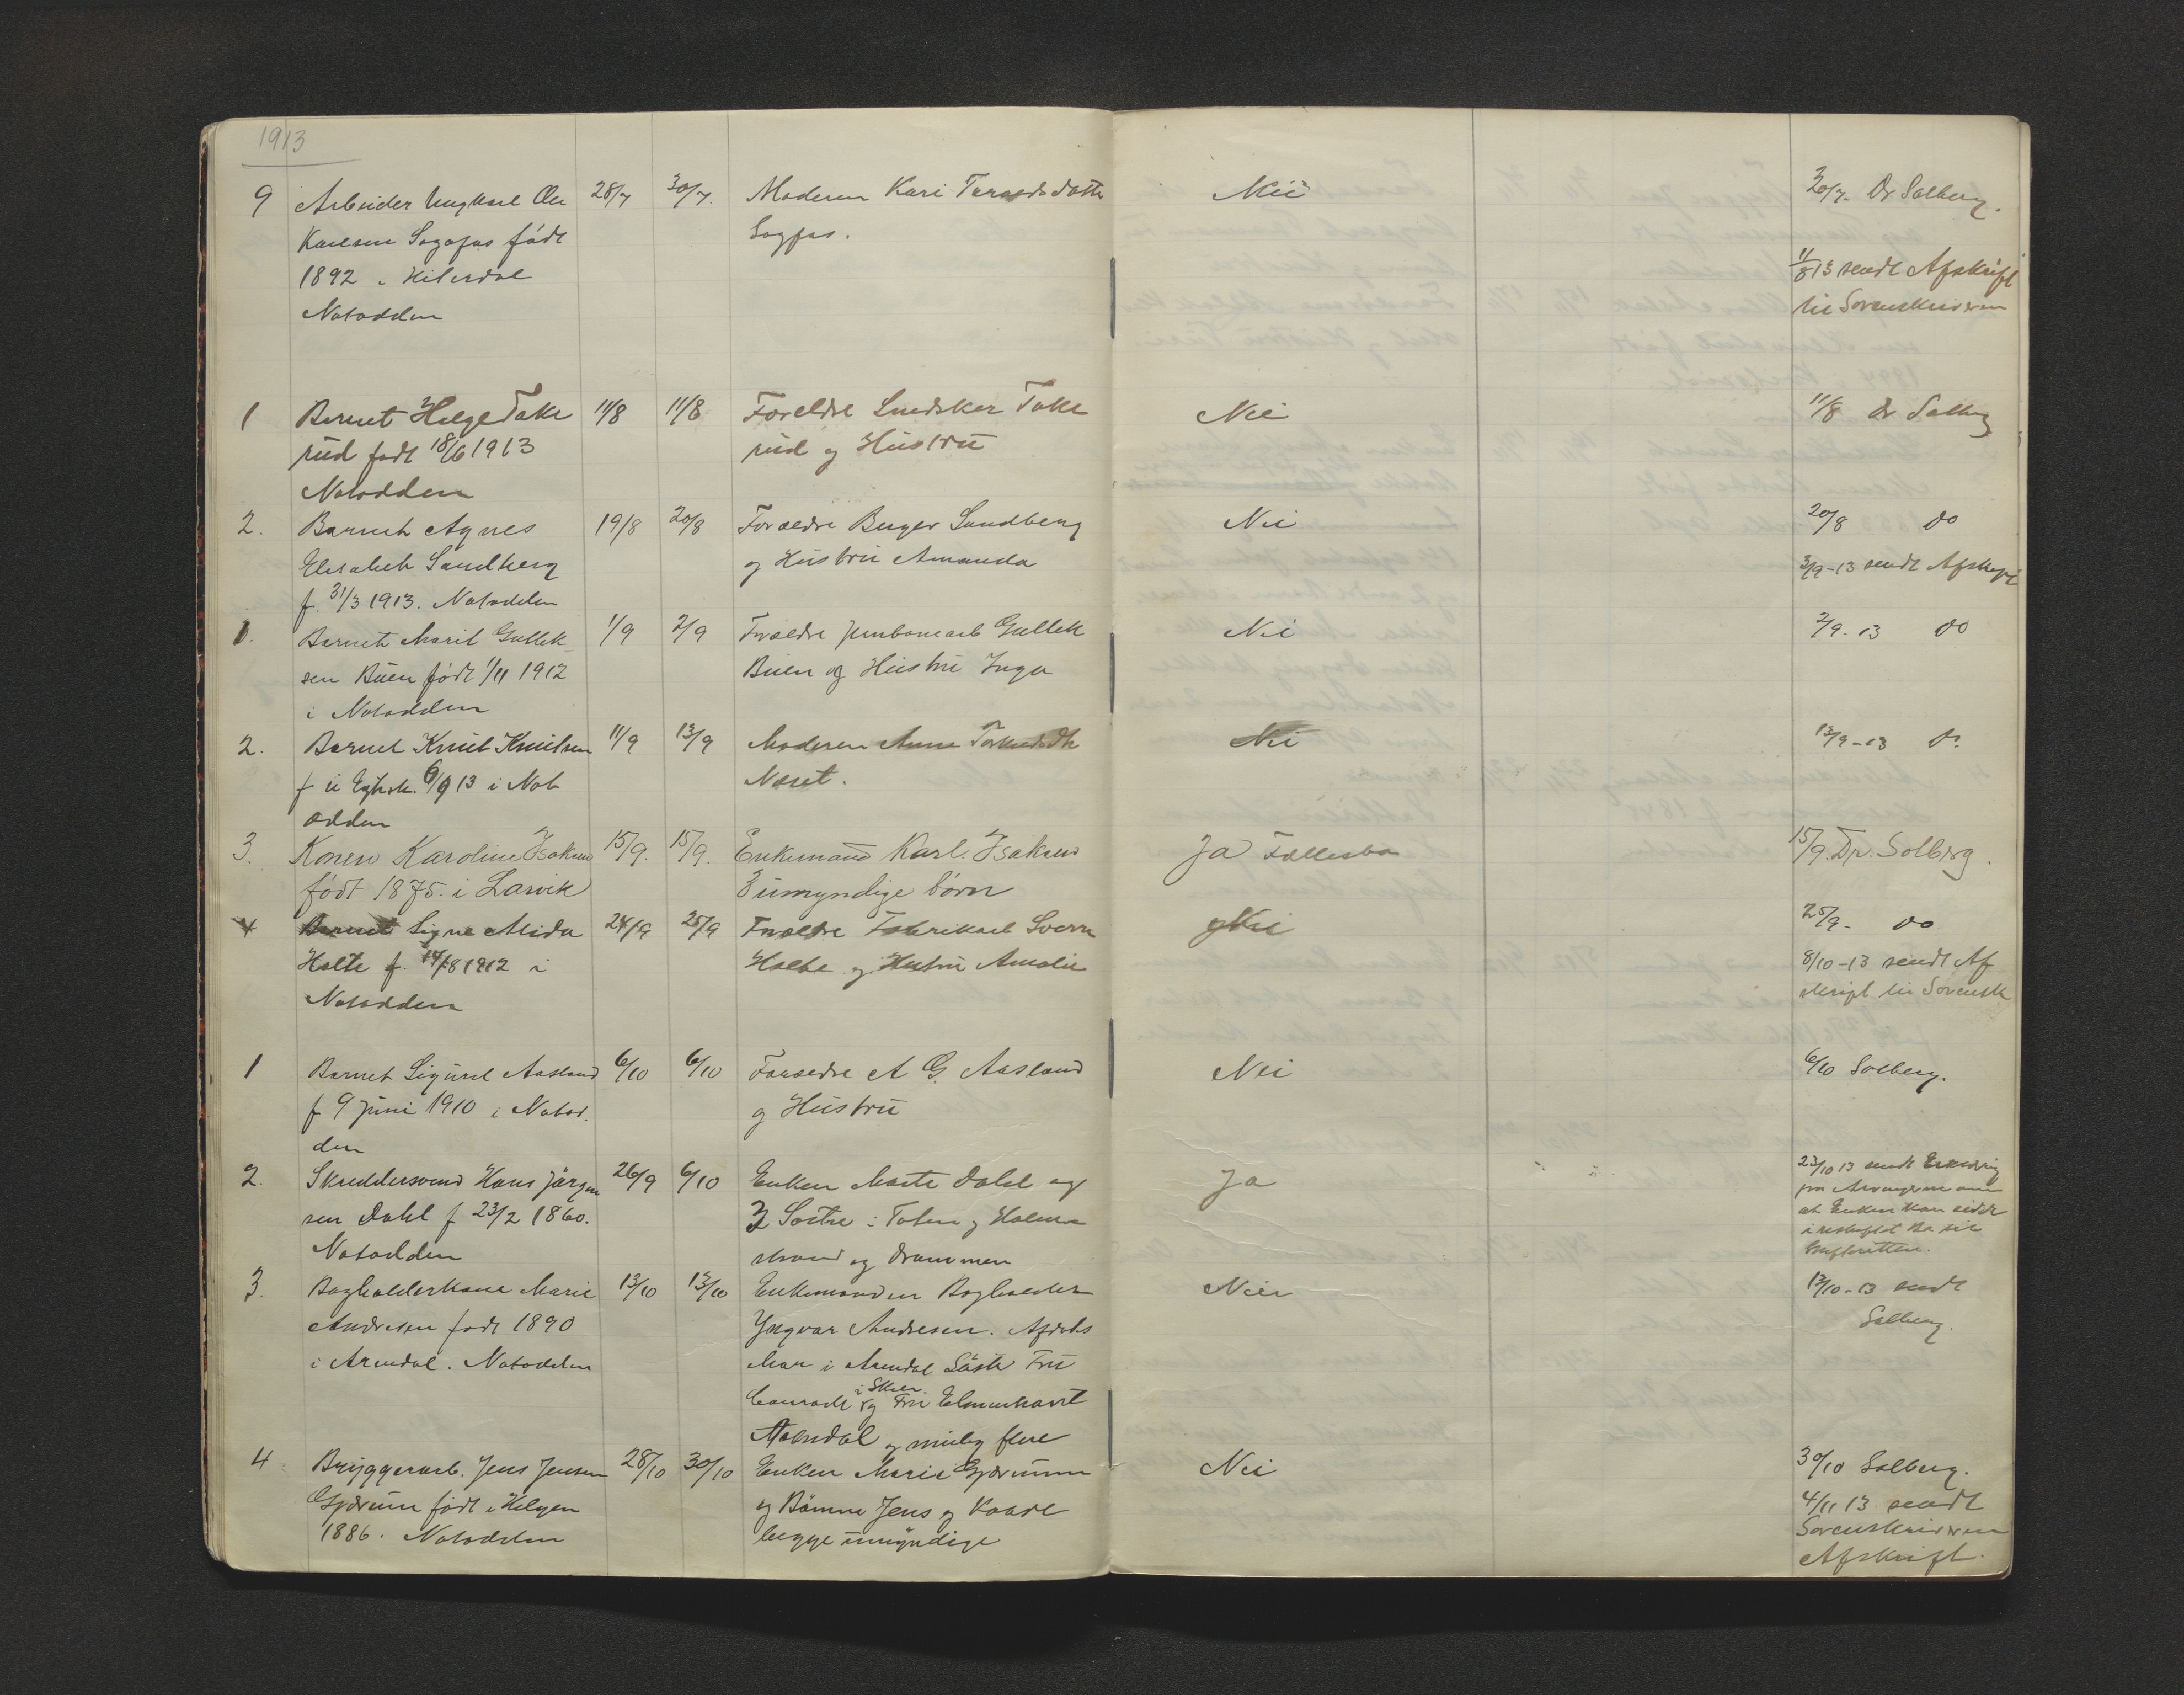 1913
9 Arbeider Ungkarl Ole 28/7 30/7. Moderen Kari Taraldsdatte Nei 30/7- Dr Solberg.
Karlsen Sagafos födt Sagfos.
1892 i Hiterdal 11/8 13 sendt Afskrift
Notodden til Sorenskriveren
1 Barnet Helge Take 11/8 11/8 Foreldre Snedker Take Nei 11/8 Dr Solberg
rud fodt 18/6 1913 rud og Hustru
Notodden
2. Barnet Agnes 19/8 20/8 Foraeldre Birger Sundberg Nei 20/8 do
Elisabeth Sandberg og Hustru Amanda 3/9-13 sendt Afskrift
f. 31/3 1913. Notodden
1. Barnet Marit Gullek- 1/9 2/9 Foraeldre Jernbanearb Gullek Nei 2/9-13 do
sen Buen födt 1/11 1912 Buen og Hustru Inga
i Notodden
2. Barnet Knut Knutsen 11/9 13/9 Moderen Anne Nei 13/9-13 do
f u Egtsk. 6/9 13 i Not Næset.
odden
3. Konen Karoline Isaksen 15/9. 15/9. Enkemand Karl Isaksen Ja Fællesbo 15/9. Dr. Solberg.
födt 1875. i Larvik 3 umyndige børn
4 Barnet Signe Alida 24/9 25/9 Foraeldre Fabrikarb Sverre Nei 25/9- do
Holte f. 14/8 1912 i Holte og Hustru Amalie 8/10-13 sendt Af
Notodden skrift til Sorensk
1 Barnet Sigurd Aasland 6/10 6/10 Foraeldre A G. Aasland Nei 6/10 Solberg.
f 9 Juni 1910 i Notod. og Hustru
den
2. Skreddersvend Hans Jörgen 26/9 6/10 Enken Marte Dahl og Ja 23/10 13 sendt Erklæring
sen Dahl f 23/2 1860. 3 Søstre i Toten og Holme fra Arvingerne om
Notodden strand og Drammen at Enken kan sidde
i uskiftet Bo til
Skifteretten.
3. Bogholderkone Marie 13/10 13/10 Enkemanden Bogholder Nei 13/10-13 sendt
Andresen fodt 1890 Yngvar Andresen. Afdøds Solberg.
i Arendal. Notodden Mor i Arendal Søster Fru
i Skien
Conradi og Fru
Arendal og mulig flere
4 Bryggerarb. Jens Jensen 28/10 30/10 Enken Marie Gjærum Nei 30/10 Solberg.
Gjærum födt i Helgen og Börnene Jens og Kaare 4/11 13 sendt
1886. Notodden begge umyndige Sorenskriveren
Afskrift.